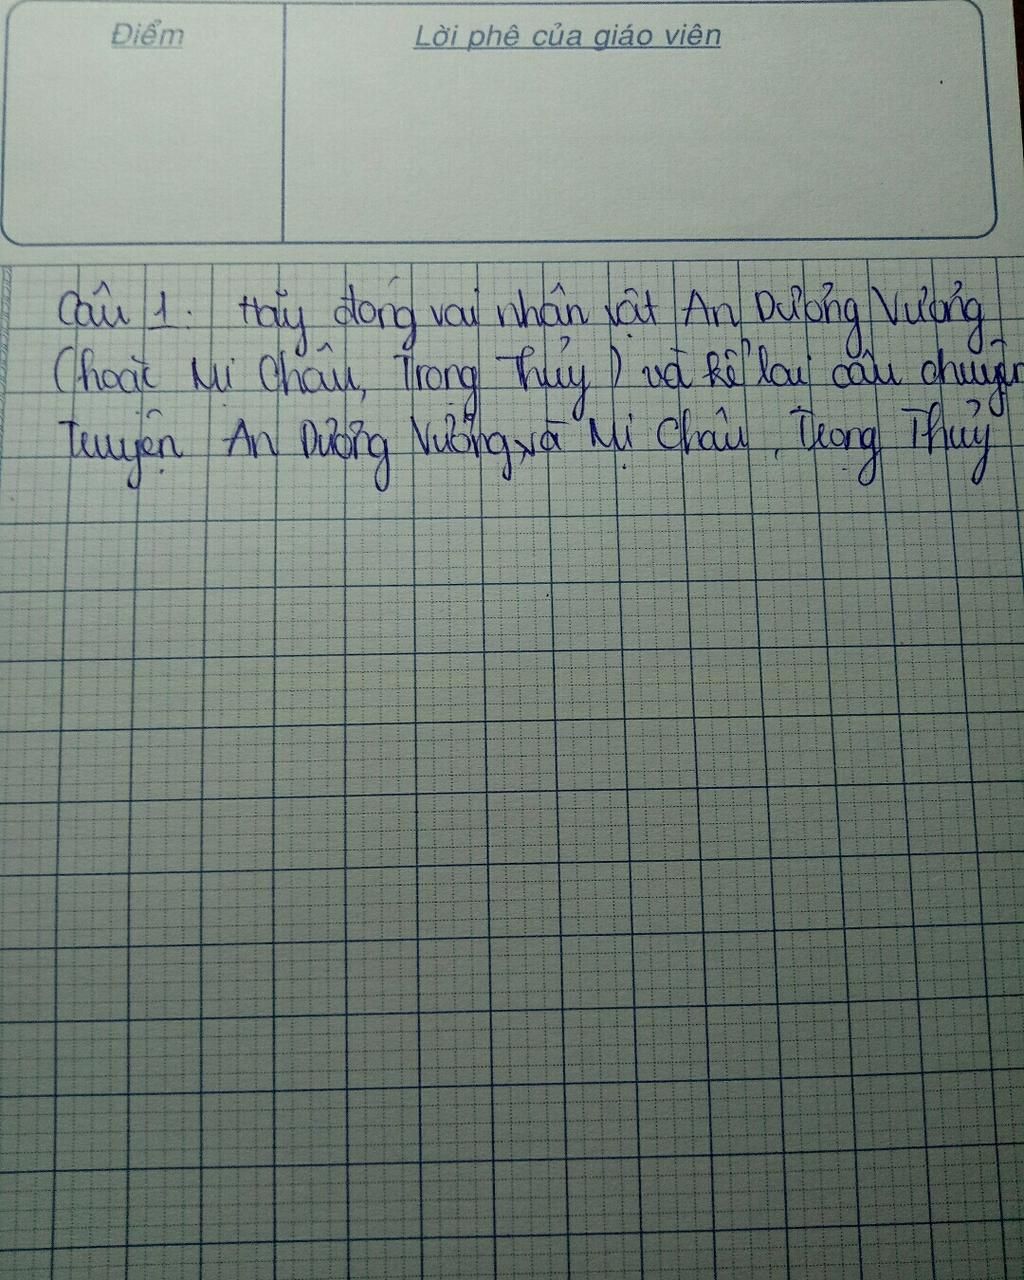 Điểm
Lời phê của giáo viên
Câu 1: Hãy đóng vai nhân vật An Dương Vương
(hoặc Mị Châu, Trọng Thủy) và kể lại câu chuyện
Truyện An Dương Vương và Mị Châu, Trọng Thủy